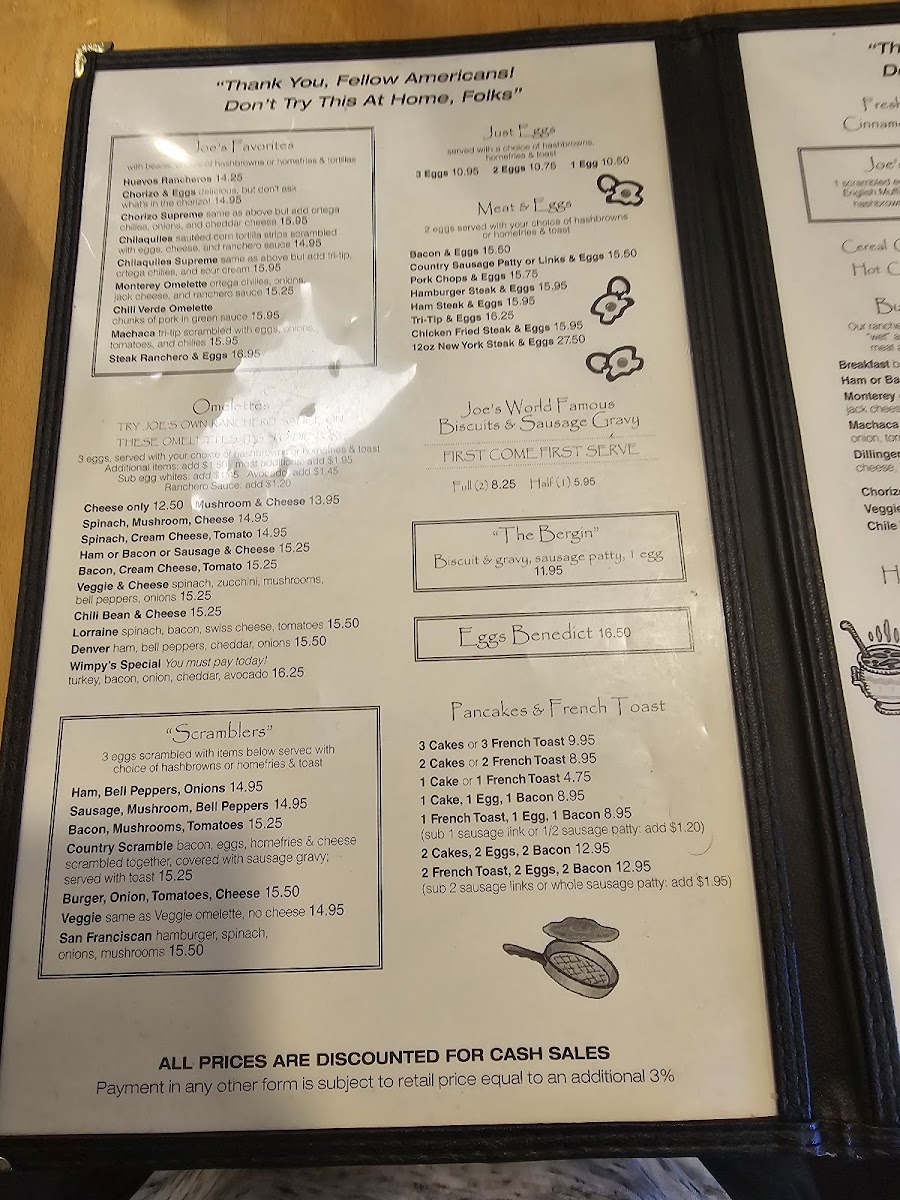 "Thank You, Fellow Americans!
Don't Try This At Home, Folks"
Joe's Favorites
with beans, choice of hashbrowns or homefries & tortillas
Huevos Rancheros 14.25
Chorizo & Eggs delicious, but don't ask
what's in the chorizo! 14.95
Chorizo Supreme same as above but add ortega
chilies, onions, and cheddar cheese 15.95
Chilaquiles sautéed corn tortilla strips scrambled
with eggs, cheese, and ranchero sauce 14.95
Chilaquiles Supreme same as above but add tri-tip,
ortega chilies, and sour cream 15.95
Monterey Omelette ortega chilies, onions,
jack cheese, and ranchero sauce 15.25
Chili Verde Omelette
chunks of pork in green sauce 15.95
Machaca tri-tip scrambled with eggs, onions,
tomatoes, and chilies 15.95
Steak Ranchero & Eggs 16.95
Omelettes
TRY JOE'S OWN RANCHERO SAUCE ON
THESE OMELETTES
3 eggs, served with your choice of hashbrowns or homefries & toast
Additional items: add add $1.95
Sub egg whites: add Avocado: add $1.45
Ranchero Sauce: add $1.20
Cheese only 12.50 Mushroom & Cheese 13.95
Spinach, Mushroom, Cheese 14.95
Spinach, Cream Cheese, Tomato 14.95
Ham or Bacon or Sausage & Cheese 15.25
Bacon, Cream Cheese, Tomato 15.25
Veggie & Cheese spinach, zucchini, mushrooms,
bell peppers, onions 15.25
Chili Bean & Cheese 15.25
Lorraine spinach, bacon, swiss cheese, tomatoes 15.50
Denver ham, bell peppers, cheddar, onions 15.50
Wimpy's Special You must pay today!
turkey, bacon, onion, cheddar, avocado 16.25
"Scramblers"
3 eggs scrambled with items below served with
choice of hashbrowns or homefries & toast
Ham, Bell Peppers, Onions 14.95
Sausage, Mushroom, Bell Peppers 14.95
Bacon, Mushrooms, Tomatoes 15.25
Country Scramble bacon, eggs, homefries & cheese
scrambled together, covered with sausage gravy;
served with toast 15.25
Burger, Onion, Tomatoes, Cheese 15.50
Veggie same as Veggie omelette, no cheese 14.95
San Franciscan hamburger, spinach,
onions, mushrooms 15.50
Just Eggs
served with a choice of hashbrowns,
homefries & toast
3 Eggs 10.95 2 Eggs 10.75 1 Egg 10.50
Meat & Eggs
2 eggs served with your choice of hashbrowns
or homefries & toast
Bacon & Eggs 15.50
Country Sausage Patty or Links & Eggs 15.50
Pork Chops & Eggs 15.75
Hamburger Steak & Eggs 15.95
Ham Steak & Eggs 15.95
Tri-Tip & Eggs 16.25
Chicken Fried Steak & Eggs 15.95
12oz New York Steak & Eggs 27.50
Joe's World Famous
Biscuits & Sausage Gravy
FIRST COME FIRST SERVE
Full (2) 8.25 Half (1) 5.95
"The Bergin"
Biscuit & gravy, sausage patty, 1 egg
11.95
Eggs Benedict 16.50
Pancakes & French Toast
3 Cakes or 3 French Toast 9.95
2 Cakes or 2 French Toast 8.95
1 Cake or 1 French Toast 4.75
1 Cake, 1 Egg, 1 Bacon 8.95
1 French Toast, 1 Egg, 1 Bacon 8.95
(sub 1 sausage link or 1/2 sausage patty: add $1.20)
2 Cakes, 2 Eggs, 2 Bacon 12.95
2 French Toast, 2 Eggs, 2 Bacon 12.95
(sub 2 sausage links or whole sausage patty: add $1.95)
ALL PRICES ARE DISCOUNTED FOR CASH SALES
Payment in any other form is subject to retail price equal to an additional 3%
"Th
D
Fresh
Cinnam
Joe'
1 scrambled e
English Muf
hashbrown
Cereal
Hot C
Bu
Our ranche
"wet" a
meat
Breakfast b
Ham or Ba
Monterey
jack chees
Machaca
onion, tom
Dillinger
cheese,
Chorizo
Veggie
Chile
H